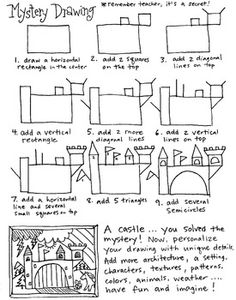 Mystery Drawing
*remember teacher, it's a secret!
1. draw a horizontal
rectangle in the center
2. add 2 squares
on the top
3. add 2 diagonal
lines on top
4. add a vertical
rectangle.
5. add 2 more
diagonal lines
6. add 2 vertical
lines on top
7. add a horizontal
line and several
small squares on top
8. add 5 triangles
9. add several
Semicircles
A castle ... you solved the
mystery! Now, personalize
your drawing with unique details.
Add more architecture, a setting,
characters, textures, patterns,
colors, animals, weather ....
have fun and imagine!